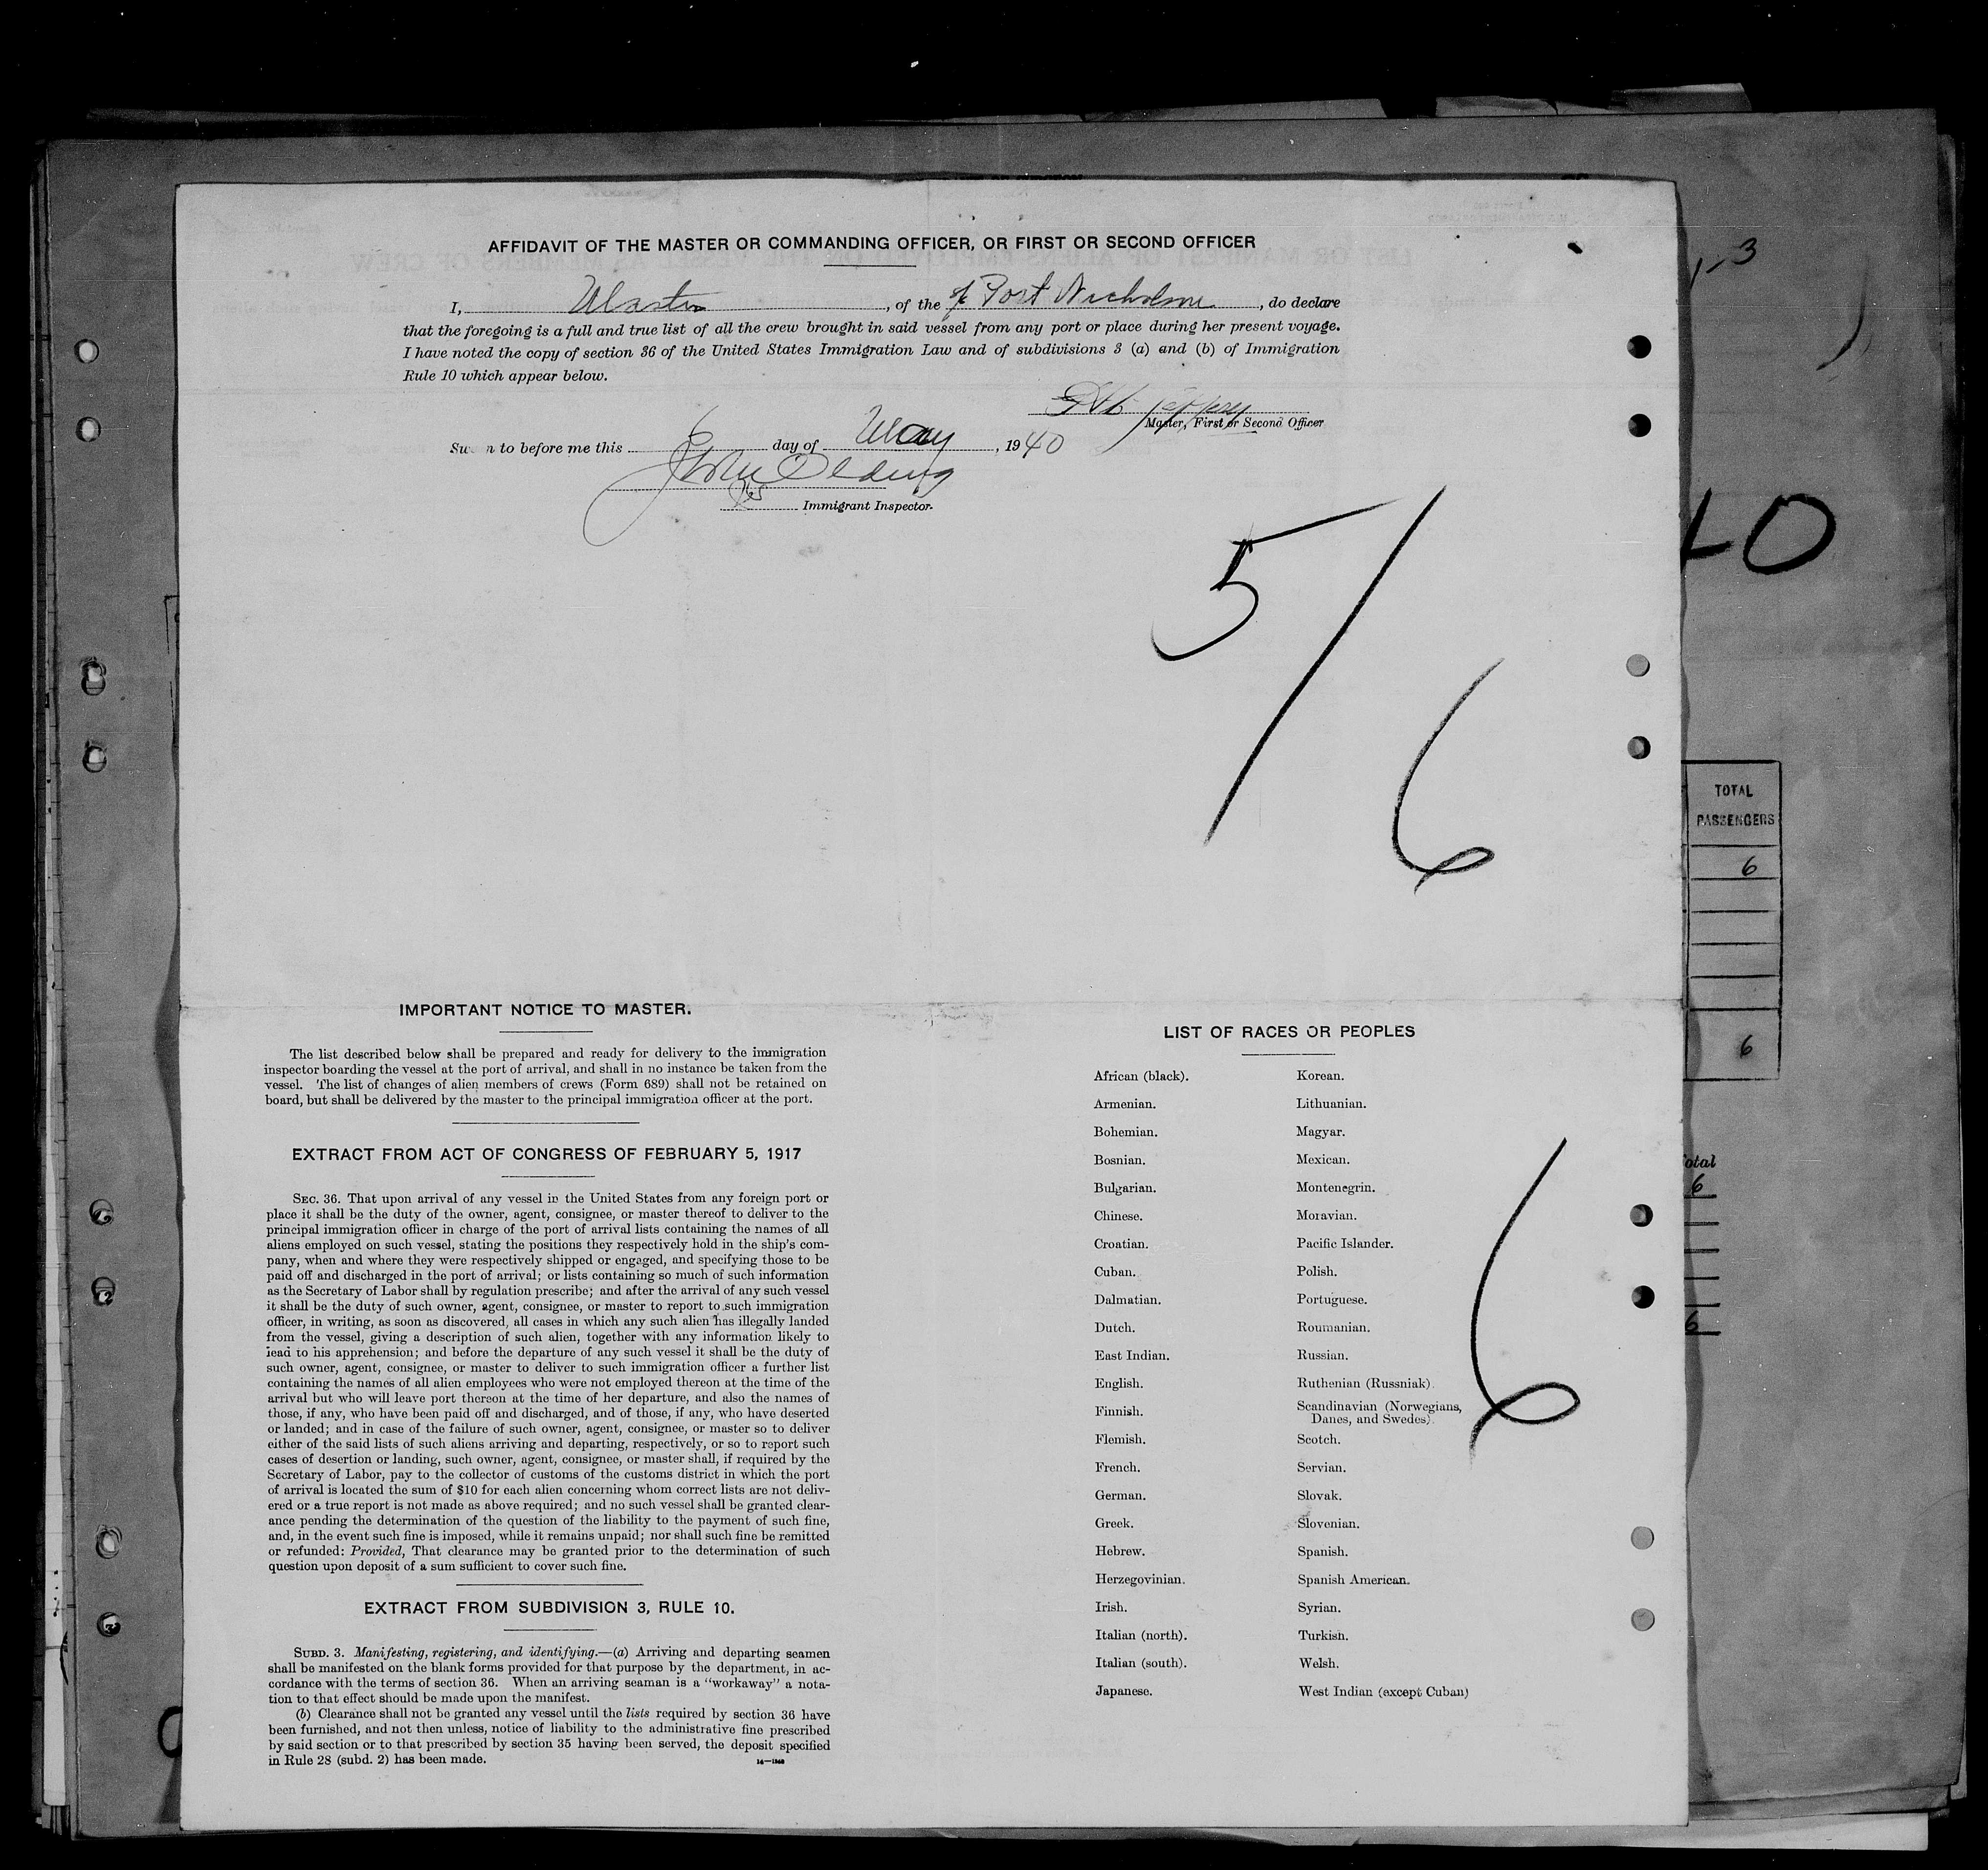 AFFIDAVIT OF THE MASTER OR COMMANDING OFFICER, OR FIRST OR SECOND OFFICER
I, Master, of the Port Nicholson, do declare
that the foregoing is a full and true list of all the crew brought in said vessel from any port or place during her present voyage.
I have noted the copy of section 36 of the United States Immigration Law and of subdivisions 3 (a) and (b) of Immigration
Rule 10 which appear below.
Jeffery
Master, First or Second Officer
Sworn to before me this 6 day of May, 1940
John Olding
Immigrant Inspector.
5/6
IMPORTANT NOTICE TO MASTER.
The list described below shall be prepared and ready for delivery to the immigration
inspector boarding the vessel at the port of arrival, and shall in no instance be taken from the
vessel. The list of changes of alien members of crews (Form 689) shall not be retained on
board, but shall be delivered by the master to the principal immigration officer at the port.
EXTRACT FROM ACT OF CONGRESS OF FEBRUARY 5, 1917
SEC. 36. That upon arrival of any vessel in the United States from any foreign port or
place it shall be the duty of the owner, agent, consignee, or master thereof to deliver to the
principal immigration officer in charge of the port of arrival lists containing the names of all
aliens employed on such vessel, stating the positions they respectively hold in the ship's com-
pany, when and where they were respectively shipped or engaged, and specifying those to be
paid off and discharged in the port of arrival; or lists containing so much of such information
as the Secretary of Labor shall by regulation prescribe; and after the arrival of any such vessel
it shall be the duty of such owner, agent, consignee, or master to report to such immigration
officer, in writing, as soon as discovered, all cases in which any such alien has illegally landed
from the vessel, giving a description of such alien, together with any information likely to
lead to his apprehension; and before the departure of any such vessel it shall be the duty of
such owner, agent, consignee, or master to deliver to such immigration officer a further list
containing the names of all alien employees who were not employed thereon at the time of the
arrival but who will leave port thereon at the time of her departure, and also the names of
those, if any, who have been paid off and discharged, and of those, if any, who have deserted
or landed; and in case of the failure of such owner, agent, consignee, or master so to deliver
either of the said lists of such aliens arriving and departing, respectively, or so to report such
cases of desertion or landing, such owner, agent, consignee, or master shall, if required by the
Secretary of Labor, pay to the collector of customs of the customs district in which the port
of arrival is located the sum of $10 for each alien concerning whom correct lists are not deliv-
ered or a true report is not made as above required; and no such vessel shall be granted clear-
ance pending the determination of the question of the liability to the payment of such fine,
and, in the event such fine is imposed, while it remains unpaid; nor shall such fine be remitted
or refunded: Provided, That clearance may be granted prior to the determination of such
question upon deposit of a sum sufficient to cover such fine.
EXTRACT FROM SUBDIVISION 3, RULE 10.
SUBD. 3. Manifesting, registering, and identifying.—(a) Arriving and departing seamen
shall be manifested on the blank forms provided for that purpose by the department, in ac-
cordance with the terms of section 36. When an arriving seaman is a "workaway" a nota-
tion to that effect should be made upon the manifest.
(b) Clearance shall not be granted any vessel until the lists required by section 36 have
been furnished, and not then unless, notice of liability to the administrative fine prescribed
by said section or to that prescribed by section 35 having been served, the deposit specified
in Rule 28 (subd. 2) has been made.
LIST OF RACES OR PEOPLES
African (black).
Armenian.
Bohemian.
Bosnian.
Bulgarian.
Chinese.
Croatian.
Cuban.
Dalmatian.
Dutch.
East Indian.
English.
Finnish.
Flemish.
French.
German.
Greek.
Hebrew.
Herzegovinian.
Irish.
Italian (north).
Italian (south).
Japanese.
Korean.
Lithuanian.
Magyar.
Mexican.
Montenegrin.
Moravian.
Pacific Islander.
Polish.
Portuguese.
Roumanian.
Russian.
Ruthenian (Russniak).
Scandinavian (Norwegians,
Danes, and Swedes).
Scotch.
Servian.
Slovak.
Slovenian.
Spanish.
Spanish American.
Syrian.
Turkish.
Welsh.
West Indian (except Cuban)
6
TOTAL
PASSENGERS
6
6
otal
6
6